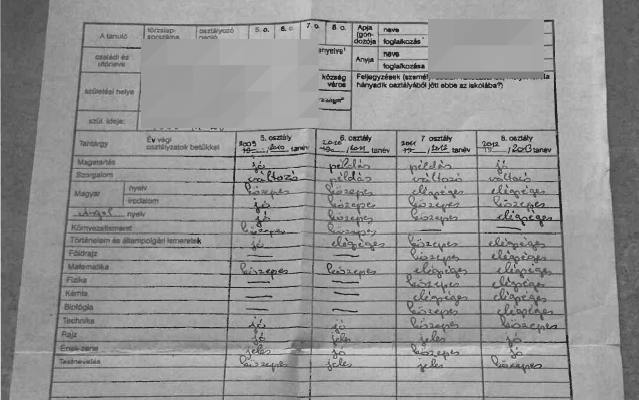 A tanuló törzslap- osztályozó 5. o. 6. o. 7. o. 8. o. Apja (gon- dozója neve
foglalkozás
családi és utóneve Anyja neve
foglalkozása
születési helye község város Feljegyzések
hányadik osztályából jött ebbe az iskolába?)
szül. ideje:
Tantárgy Év végi osztályzatok betűkkel 5. osztály 6. osztály 7. osztály 8. osztály
2009 2010 tanév 2010 2011 tanév 2011 2012 tanév 2012 2013 tanév
Magatartás jó példás példás jó
Szorgalom változó példás változó változó
Magyar nyelv közepes közepes elégséges elégséges
irodalom jó közepes közepes közepes
angol nyelv jó közepes közepes elégséges
Környezetismeret közepes közepes — —
Történelem és állampolgári ismeretek jó elégséges közepes elégséges
Földrajz — — közepes elégséges
Matematika közepes közepes elégséges elégséges
Fizika — — közepes elégséges
Kémia — — elégséges elégséges
Biológia — — közepes elégséges
Technika jó jó közepes közepes
Rajz jó jeles jeles jó
Ének-zene jeles jó közepes jó
Testnevelés közepes jeles jeles közepes